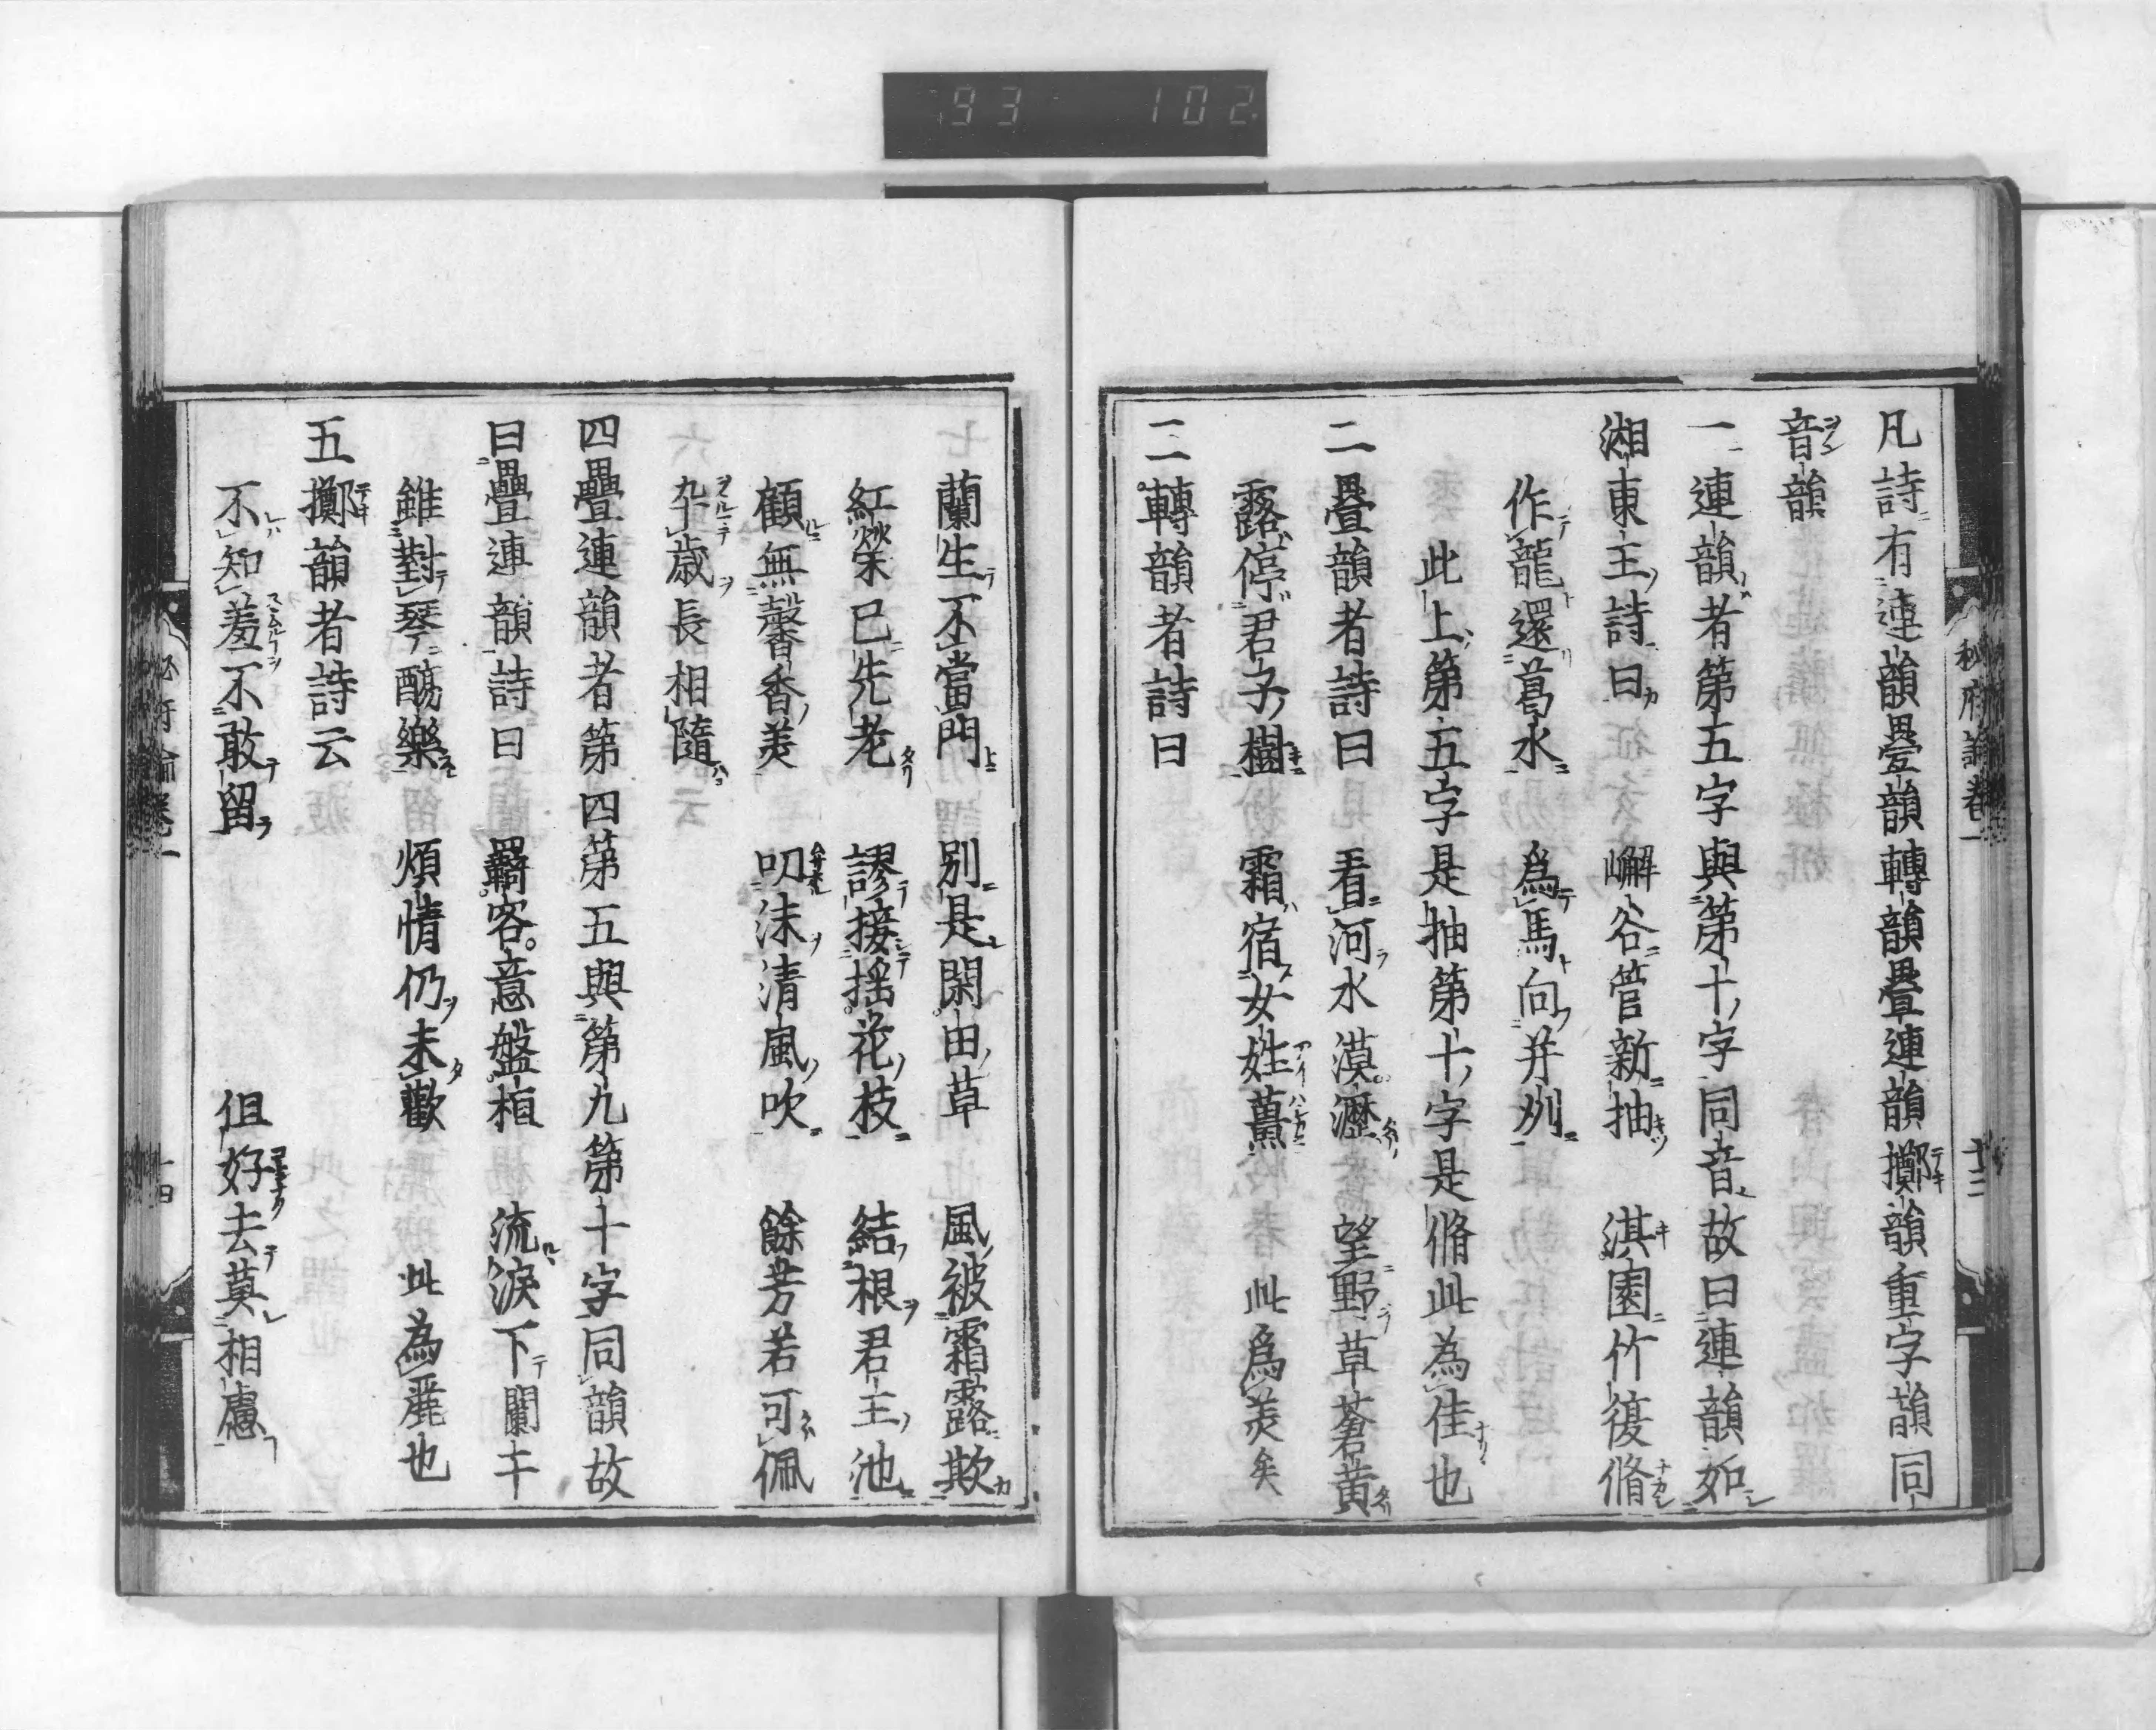 93 102
凡詩有連韻疊韻轉韻疊連韻擲韻重字韻同
音韻
一連韻者第五字與第十字同音故曰連韻如
湘東王詩曰 嶰谷管新抽 淇園竹復脩
作龍還葛水 爲馬向并州
此上第五字是抽第十字是脩此為佳也
二疊韻者詩曰 看河水漠瀝 望野草蒼黃
露停君子樹 霜宿女姓薑 此爲美矣
三轉韻者詩曰
蘭生不當門 别是閑田草 風被霜露欺
紅榮已先老 謬接摇花枝 結根君王池
顧無馨香美 叨沫清風吹 餘芳若可佩
卒歳長相隨
四疊連韻者第四第五與第九第十字同韻故
曰疊連韻詩曰 羇客意盤桓 流淚下闌干
雖對琴觴樂 煩情仍未歡 此為麗也
五擲韻者詩云
不知羞不敢留 但好去莫相慮
秘府論卷一 十三
秘府論卷一 十四